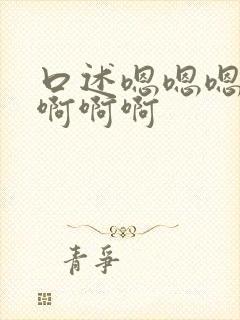 口述嗯嗯嗯
啊啊啊
青争